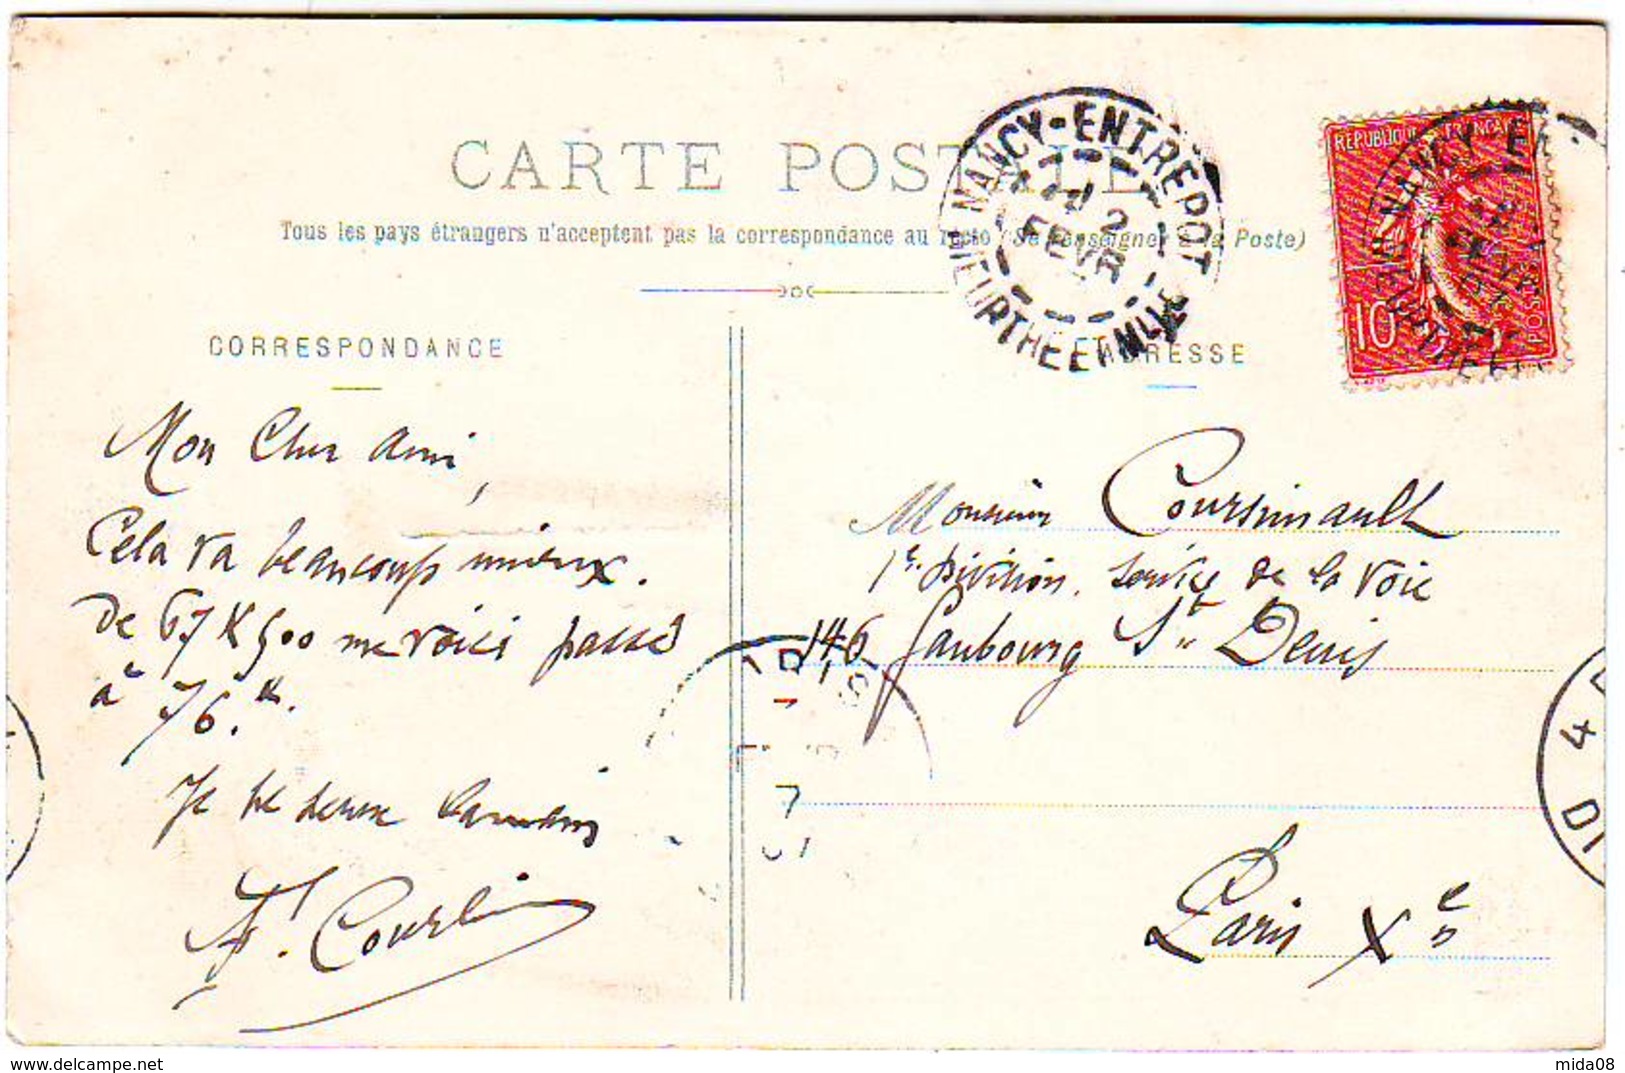 CARTE POSTALE
Tous les pays étrangers n'acceptent pas la correspondance au recto (Se renseigner à la Poste)
NANCY-ENTREPOT
2
FEVR
MEURTHE ET MLLE
REPUBLIQUE FRANÇAISE
10
POSTES
CORRESPONDANCE
ET ADRESSE
Mon Cher Ami,
Cela va beaucoup mieux.
De 67 K 500 me voici passé
à 76.K.
Je te serre la main
Monsieur Coursimault
1e Division. Service de la Voie
146 faubourg St Denis
Paris Xe
PARIS
7
07
4
DI
delcampe.net
mida08